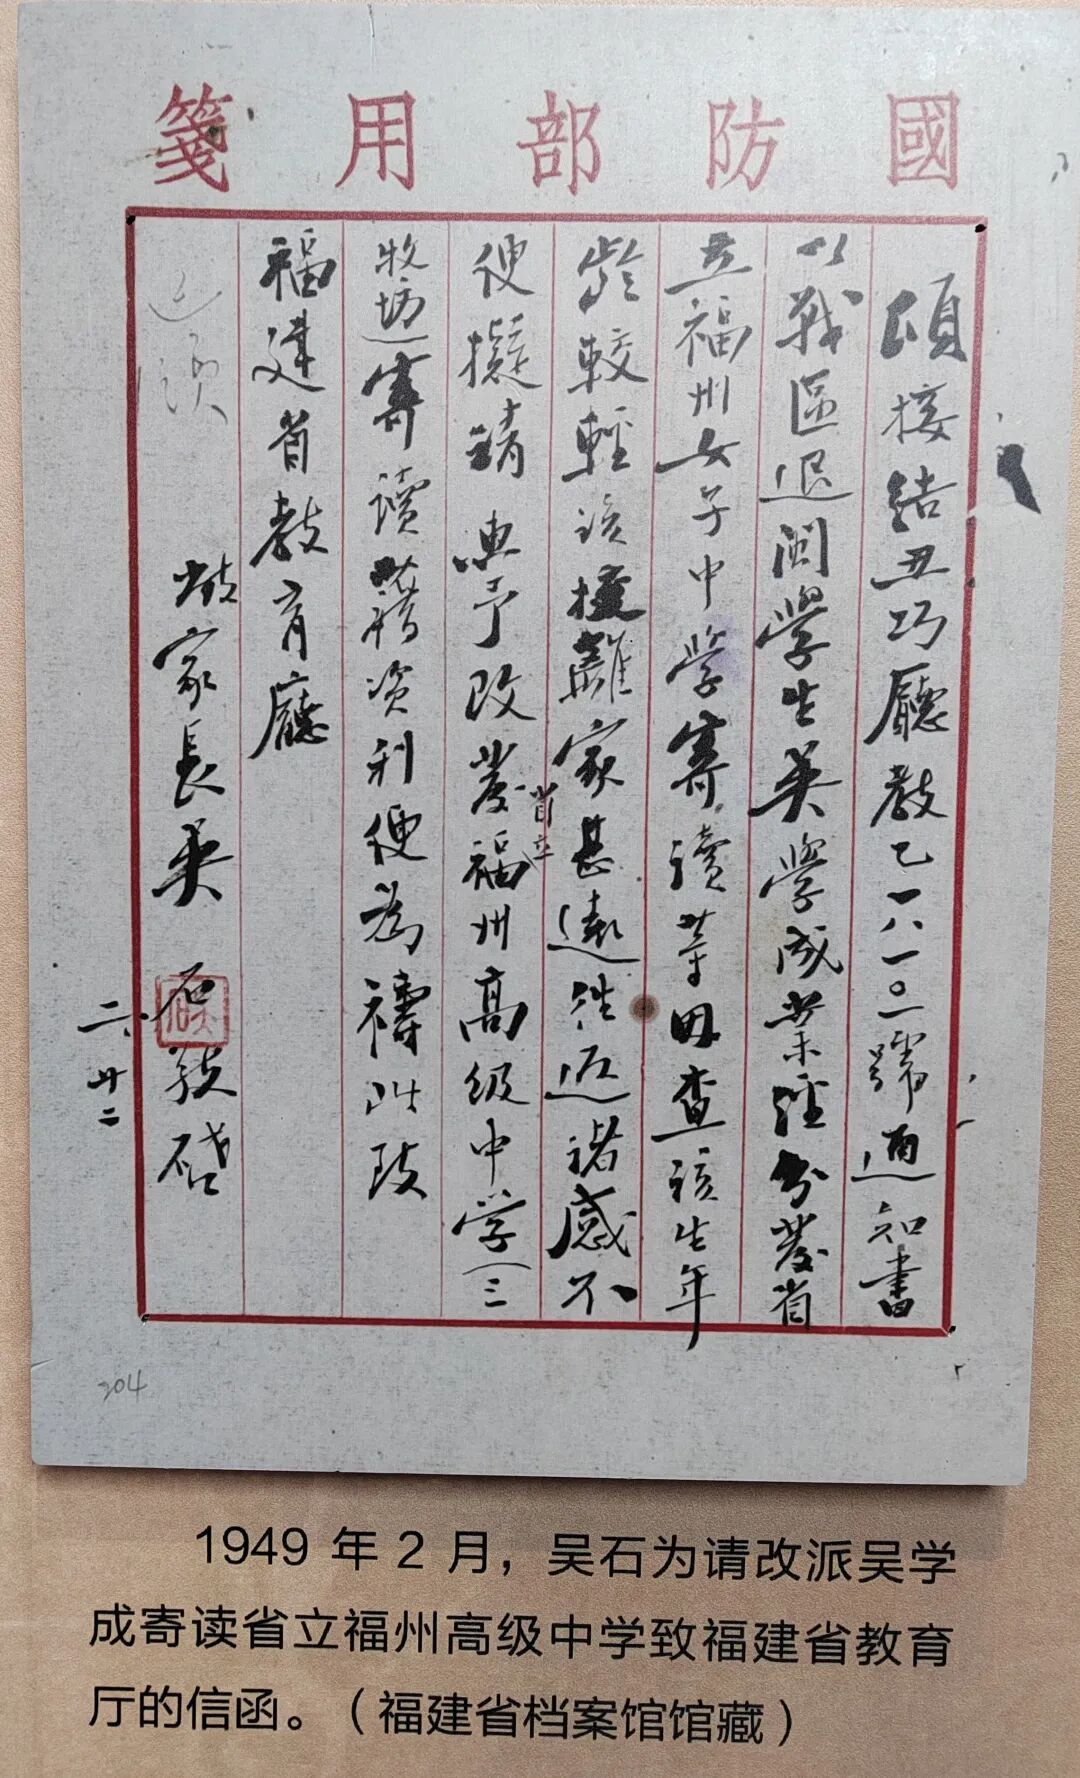 國防部用箋
頃接結丑巧廳教乙一八一〇號通知書
以戰區退閩學生吴學成業經分發省
立福州女子中學寄讀等因查該生年
齡較輕該校離家甚遠往返諸感不
便擬請惠予改發省立福州高级中学（三
牧坊）寄讀藉資利便為禱此致
福建省教育廳
家長吴石敬啓
二、廿二
204
1949 年 2 月，吴石为请改派吴学
成寄读省立福州高级中学致福建省教育
厅的信函。（福建省档案馆馆藏）